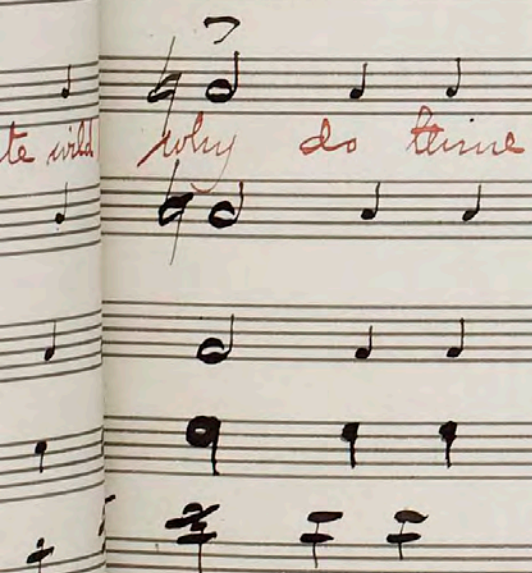 te wild why do thine